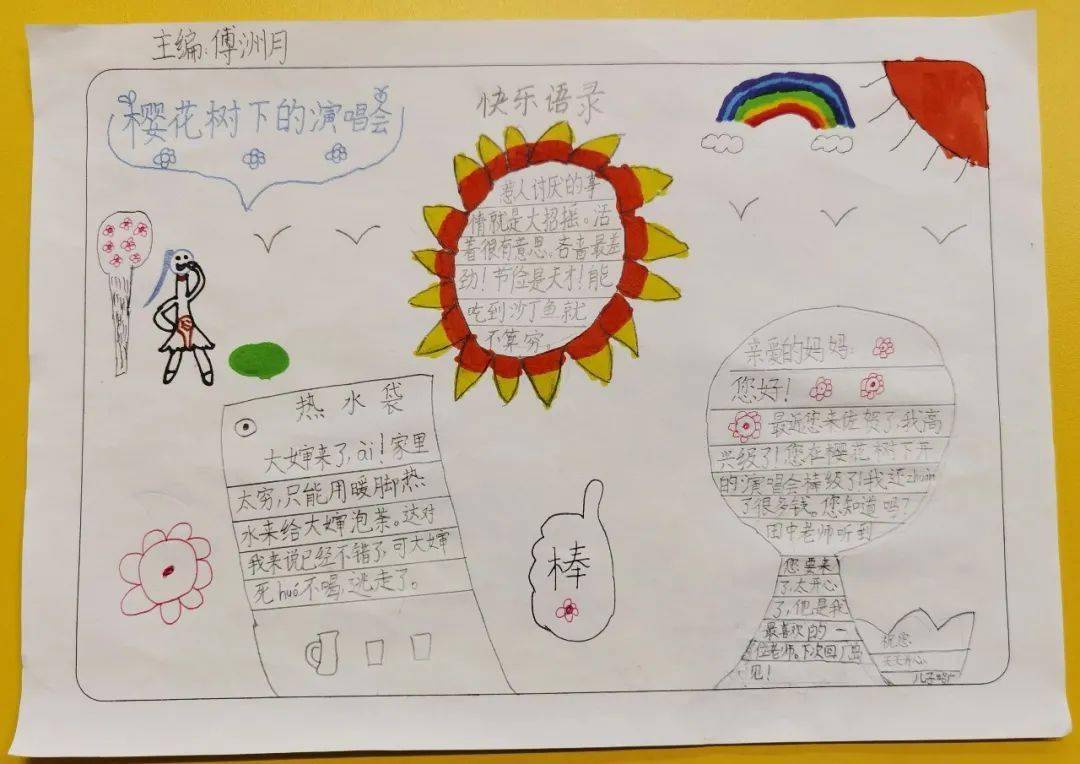 主编:傅洲月
樱花树下的演唱会
快乐语录
惹人讨厌的事
情就是大招摇。活
着很有意思。吝啬最差
劲！节俭是天才！能
吃到沙丁鱼就
不算穷。
热水袋
大婶来了，āi！家里
太穷，只能用暖脚热
水来给大婶泡茶。这对
我来说已经不错了，可大婶
死huó不喝，逃走了。
棒
亲爱的妈妈：
您好！
最近您来佐贺了，我高
兴级了！您在樱花树下开
的演唱会棒级了！我还zhuàn
了很多钱。您知道吗？
田中老师听到
您要来
了，太开心
了，他是我
最喜欢的一
位老师。下次回广岛
见！
祝您
天天开心
儿子昭广